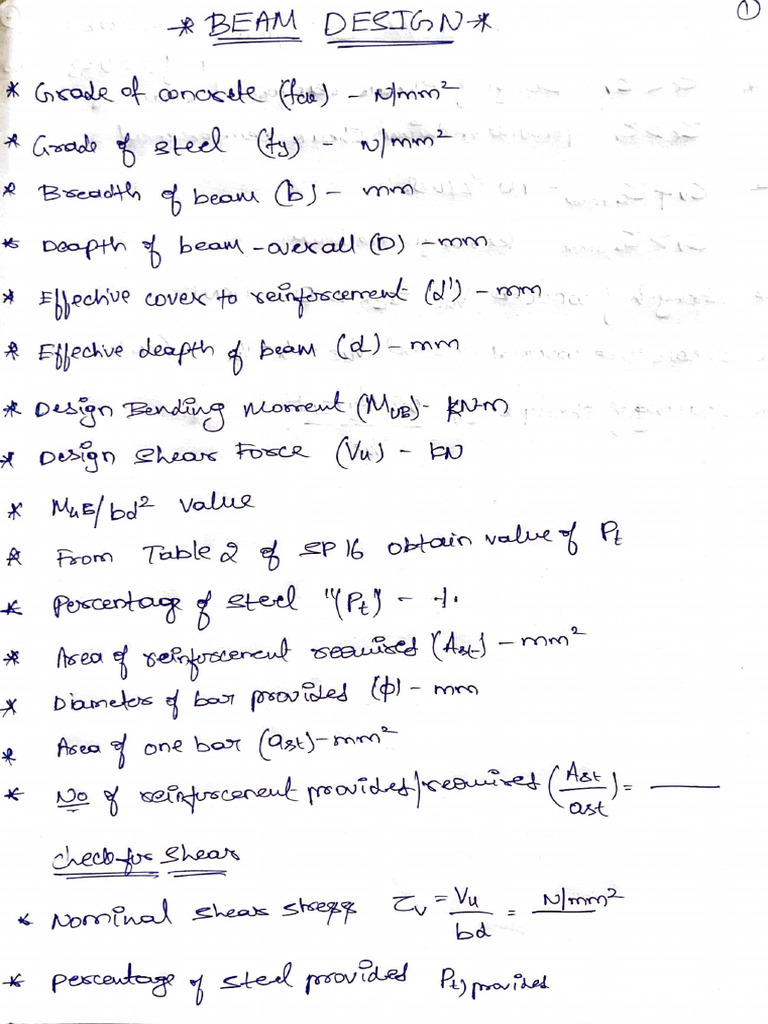 ①
* BEAM DESIGN *
* Grade of concrete (fck) - N/mm²
* Grade of steel (fy) - N/mm²
* Breadth of beam (b) - mm
* Deapth of beam - overall (D) - mm
* Effective cover to reinforcement (d') - mm
* Effective deapth of beam (d) - mm
* Design Bending Moment (MuB) - KN-m
* Design Shear Force (Vu) - KN
* MuB/bd² value
* From Table 2 of SP 16 obtain value of Pt
* Percentage of steel "(Pt) - %
* Area of reinforcement required (Ast) - mm²
* Diameter of bar provided (ϕ) - mm
* Area of one bar (ast) - mm²
* No of reinforcement provided/required (Ast/ast) = ____
Check for Shear
* Nominal Shear Stress τv = Vu/bd = N/mm²
* Percentage of steel provided Pt) provided